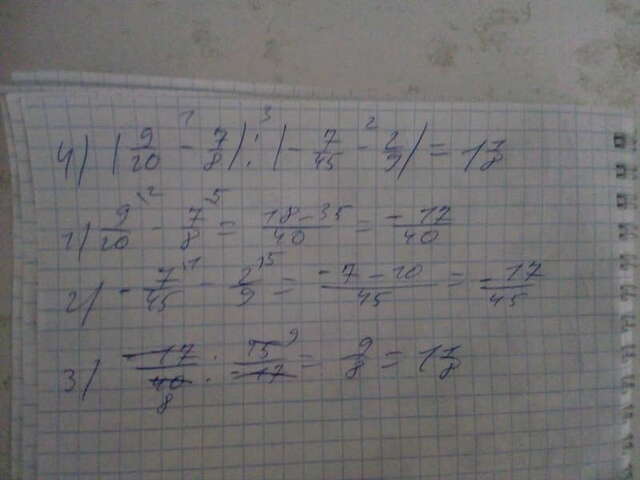 4) (9/20 - 7/8) : (- 7/45 - 2/9) = 1 1/8
1) 9/20 - 7/8 = 18-35/40 = -17/40
2) - 7/45 - 2/9 = -7-10/45 = -17/45
3) -17/40 : 45/-17 = 9/8 = 1 1/8